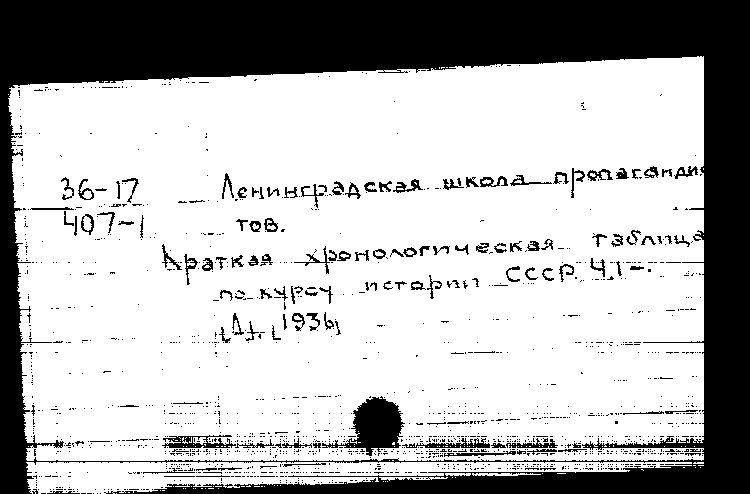 36-17 Ленинградская школа пропагандис
407-1 тов.
Краткая хронологическая таблица
по курсу истории СССР. Ч.1-.
[Л]. [1936]